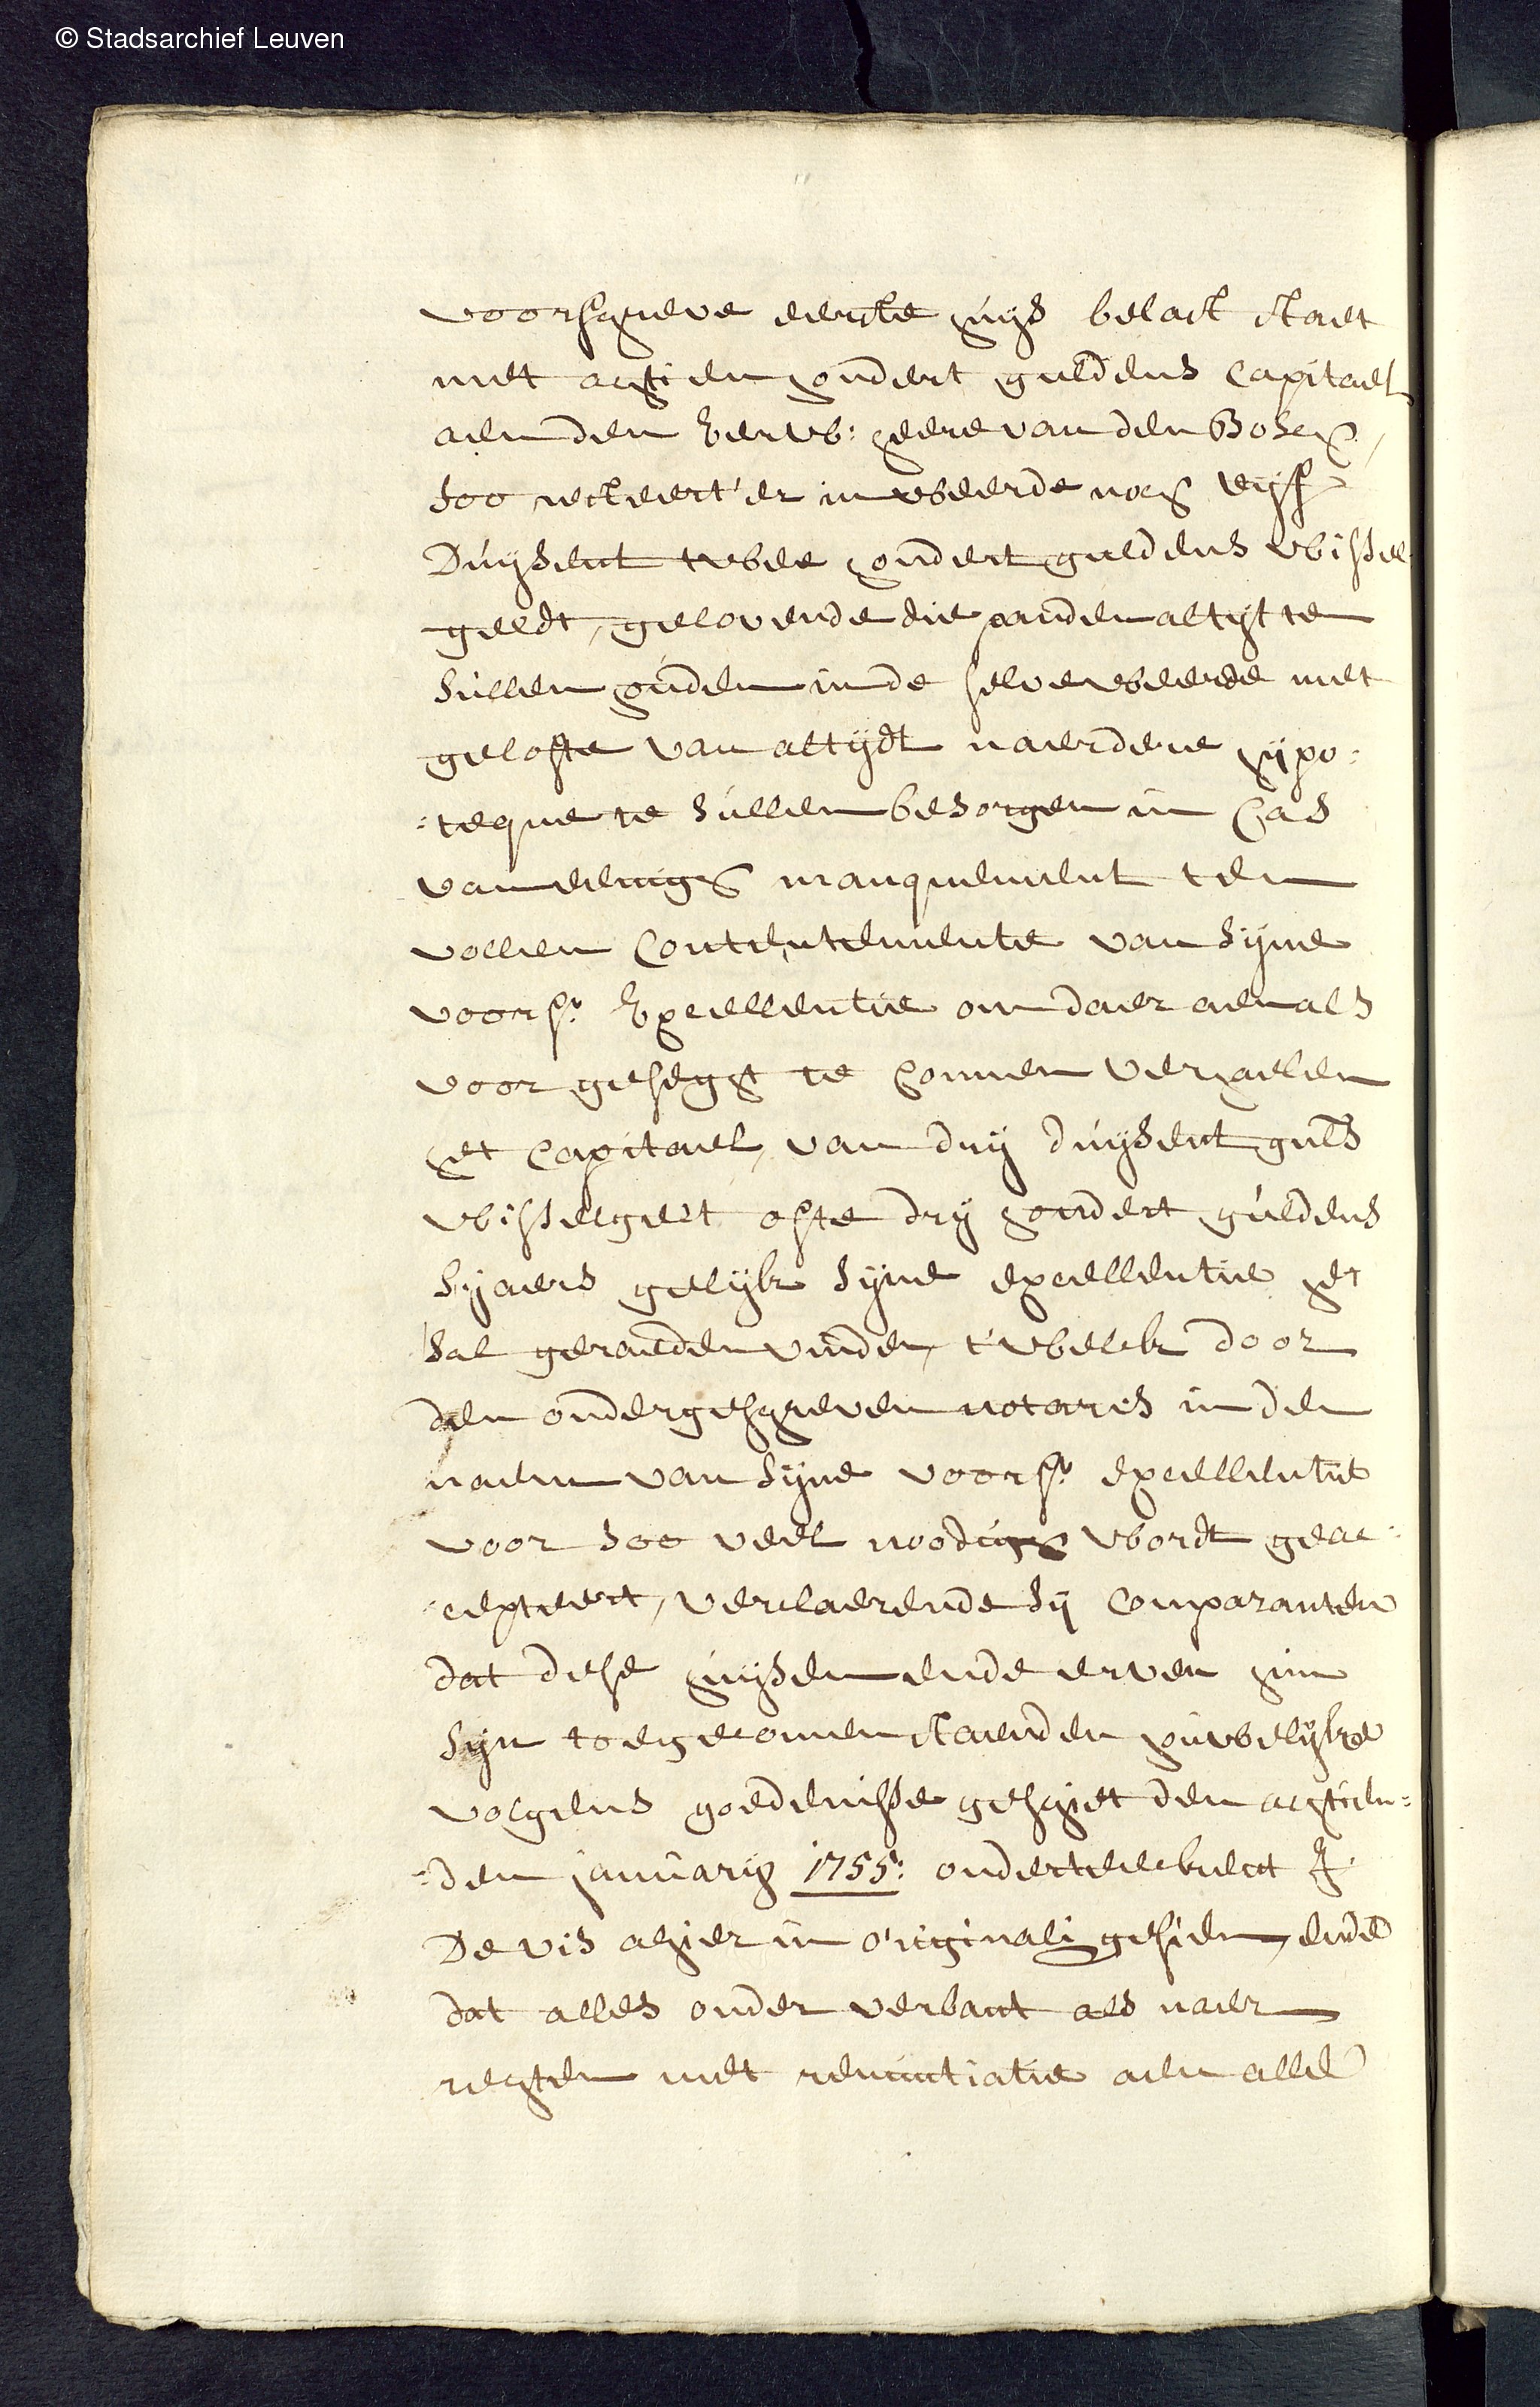 © Stadsarchief Leuven
voorschreve eerste huijs belast staet
met achtien hondert guldens Capitael
aen den Eerw: heere van den Bosch,
soo resteert'er in weerde noch vijf
Duijsent twee hondert guldens wissel
geldt, gelovende die panden altijt te
sullen houden in de selve weerde met
gelofte van altijdt naerdere hijpo:
:teque te sullen besorgen in Cas
van eenigh manquement ten
vollen Contentemente van sijne
voors: Excellentie om daer aen als
voor gesegt te connen verhaelen
het Capitael, van drij duijsent guls
wisselgelt ofte drij hondert guldens
sjaers gelijk sijne excellentie het
sal geraeden vinden, t'welck door
den ondergeschreven notaris in den
naem van sijne voors: excellentie
voor soo veel noodigh wordt geac:
:cepteert, verclaerende sij Comparanten
dat dese huijsen ende erven hun
sijn toegecomen staenden huwelijke
volgens goedenisse geschiet den achtien:
:den januarij 1755: onderteekent J:
De vis alhier in originali gesien, ende
dat alles onder verbant als naer
rechten met renuntiatie aen alle